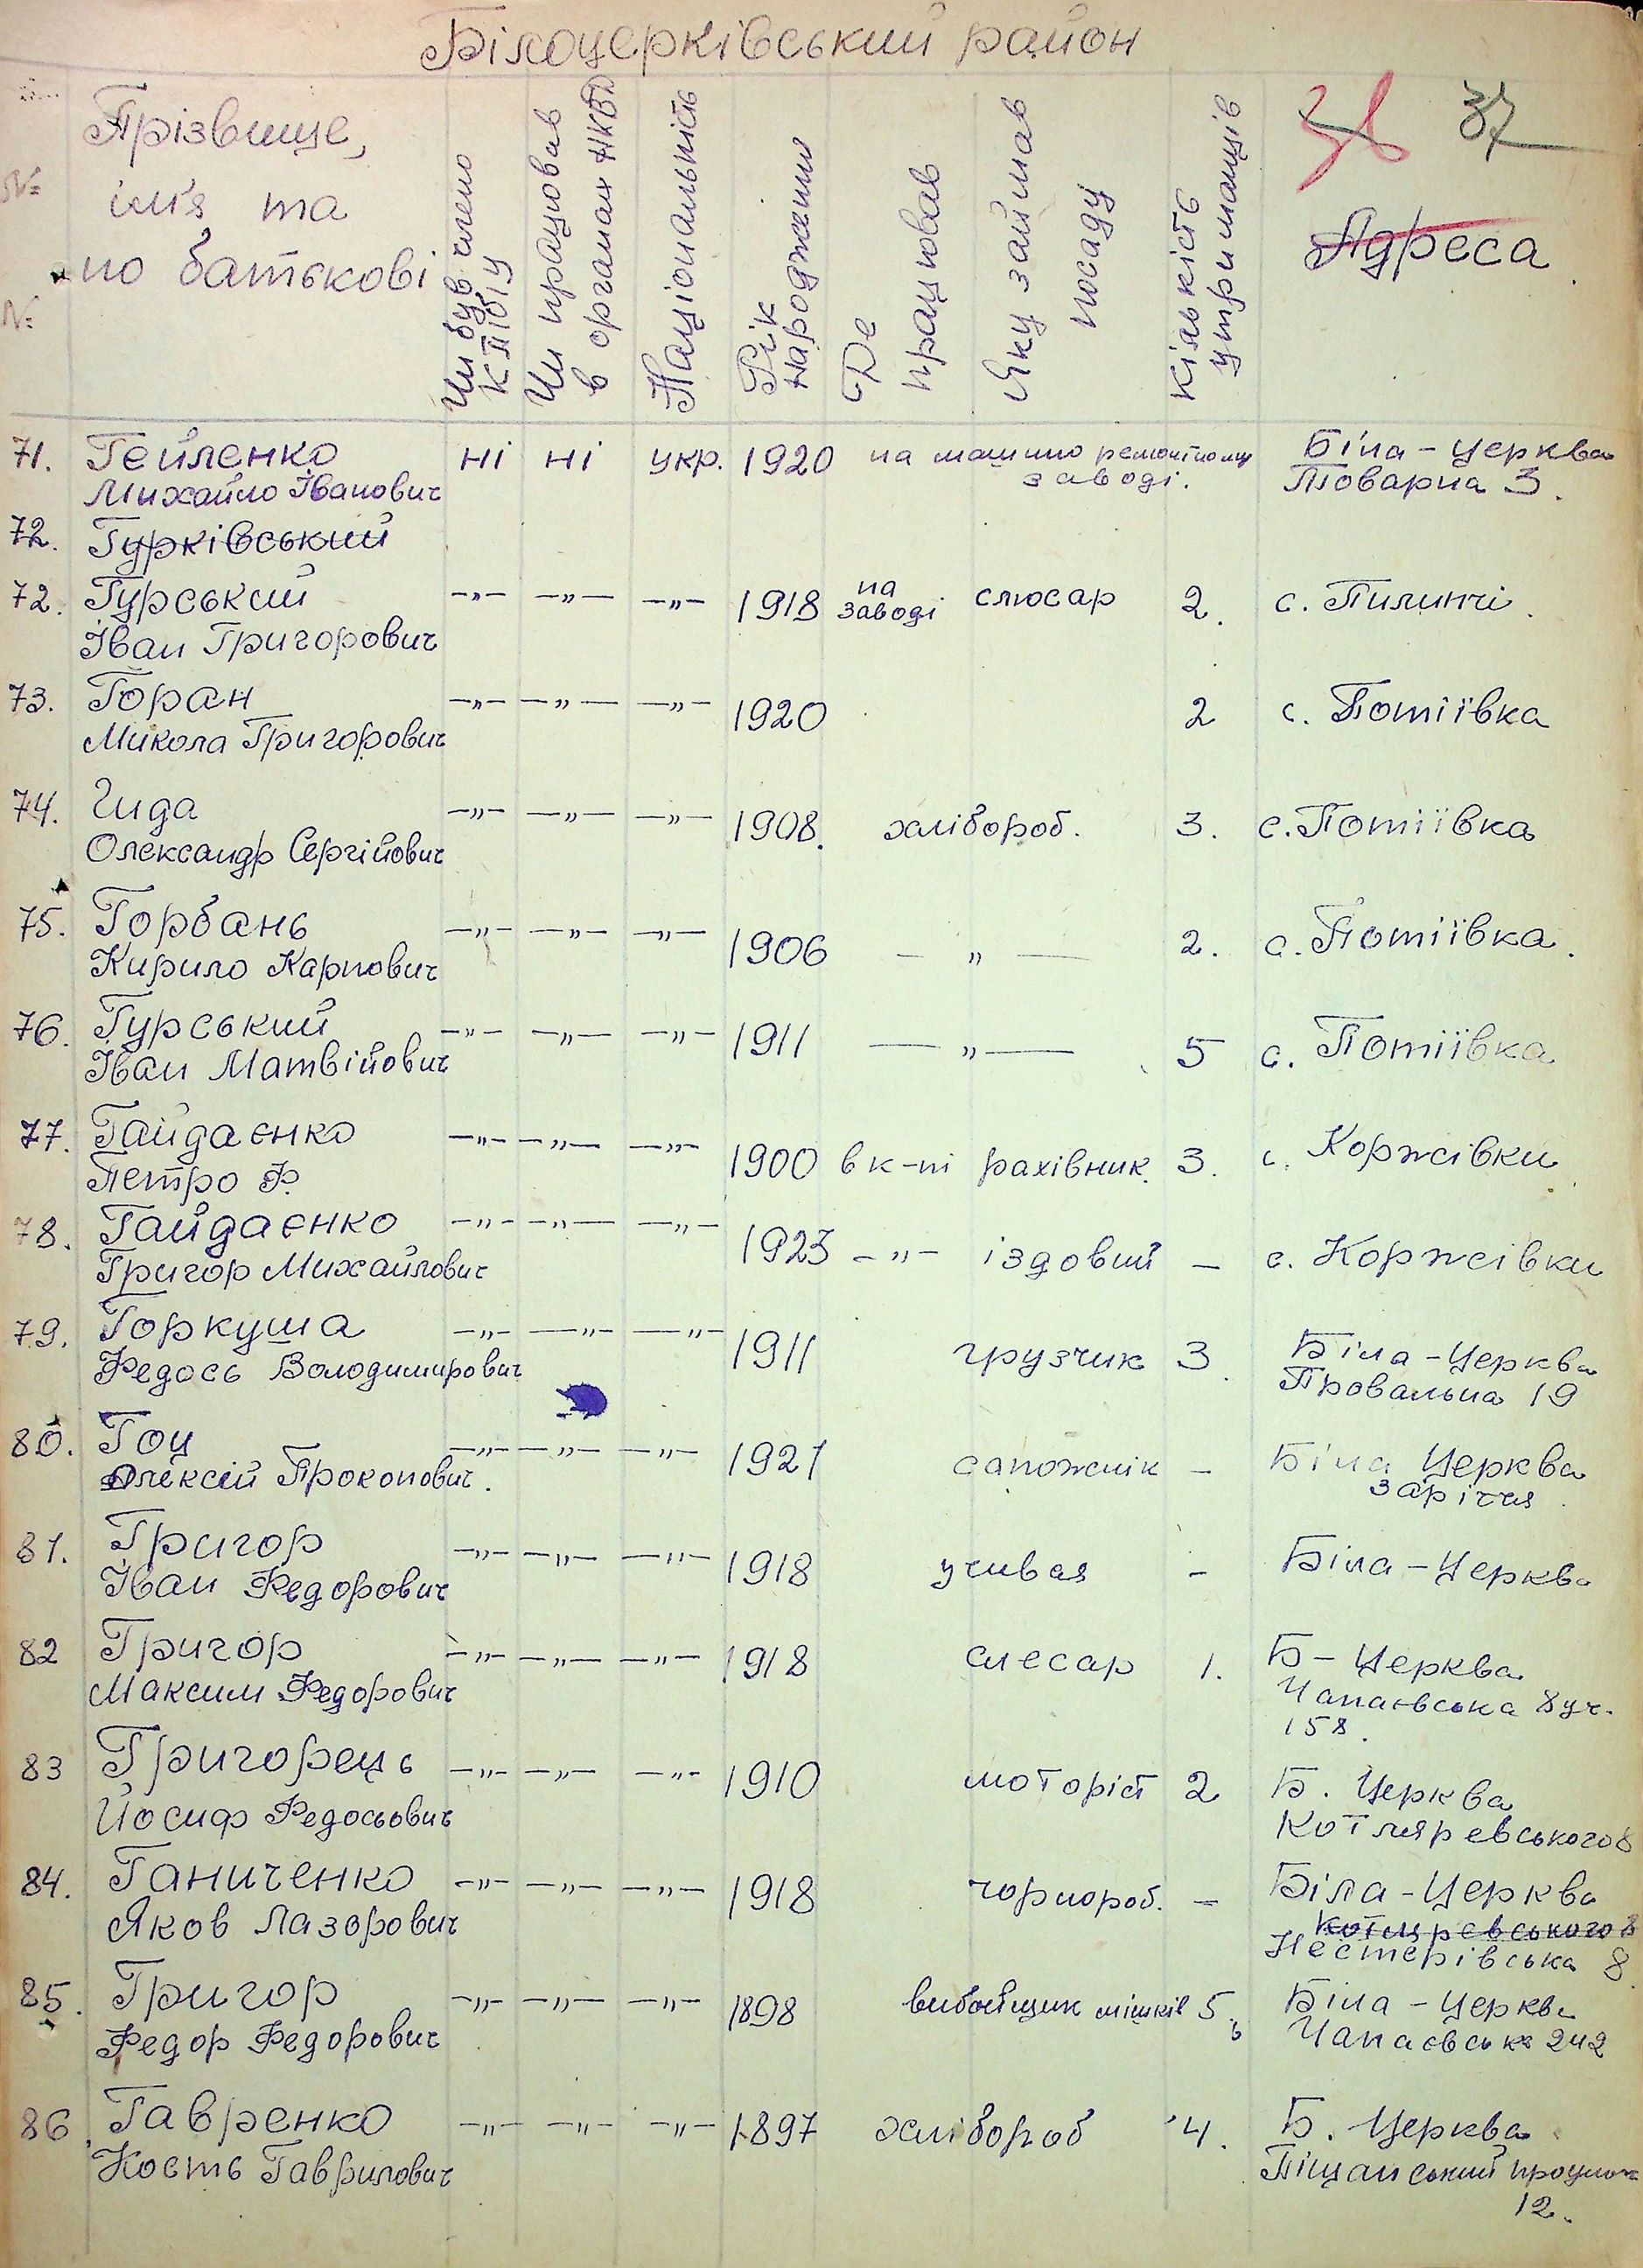 Білоцерківський район
38 37
№ №
Прізвище, ім'я та по батькові
Чи був члено КП(б)У
Чи працював в органах НКВД
Національність
Рік народження
Де працював
Яку займав посаду
Кількість утриманців
Адреса
71. Гейленко ні ні укр. 1920 на машино ремонтному Біла-Церква
Михайло Іванович заводі. Товарна 3.
72. Гурківський
72. Гурський -„- -„- -„- 1918 на заводі слюсар 2. с. Пилипчі.
Іван Григорович
73. Горан -„- -„- -„- 1920 2 с. Потіївка
Микола Григорович
74. Гида -„- -„- -„- 1908. хлібороб. 3. с. Потіївка
Олександр Сергійович
75. Горбань -„- -„- -„- 1906 - „ - 2. с. Потіївка.
Кирило Карпович
76. Гурський -„- -„- -„- 1911 - „ - 5 с. Потіївка
Іван Матвійович
77. Гайдаєнко -„- -„- -„- 1900 в к-пі рахівник. 3. с. Коржівки
Петро Ф.
78. Гайдаєнко -„- -„- -„- 1923 -„- їздовий - с. Коржівки
Григор Михайлович
79. Горкуша -„- -„- -„- 1911 грузчик 3 Біла-Церква
Федось Володимирович Провальна 19
80. Гоц -„- -„- -„- 1921 сапожнік - Біла Церква
Олексій Прокопович. Заріччя.
81. Григор -„- -„- -„- 1918 учився - Біла-Церква
Іван Федорович
82 Григор -„- -„- -„- 1918 слесар 1. Б-Церква
Максим Федорович Чапаєвська 8 уч.
158.
83 Григорець -„- -„- -„- 1910 моторіст 2 Б. Церква
Йосиф Федосьович Котляревського 8
84. Ганиченко -„- -„- -„- 1918 чорнороб. - Біла-Церква
Яков Лазорович Котляревського 8
Нестерівська 8.
85. Григор -„- -„- -„- 1898 вибойщик мішків 5 Біла-Церква
Федор Федорович Чапаєвська 242
86. Гавренко -„- -„- -„- 1897 хлібороб 4. Б. Церква
Кость Гаврилович Піщанський проулок
12.